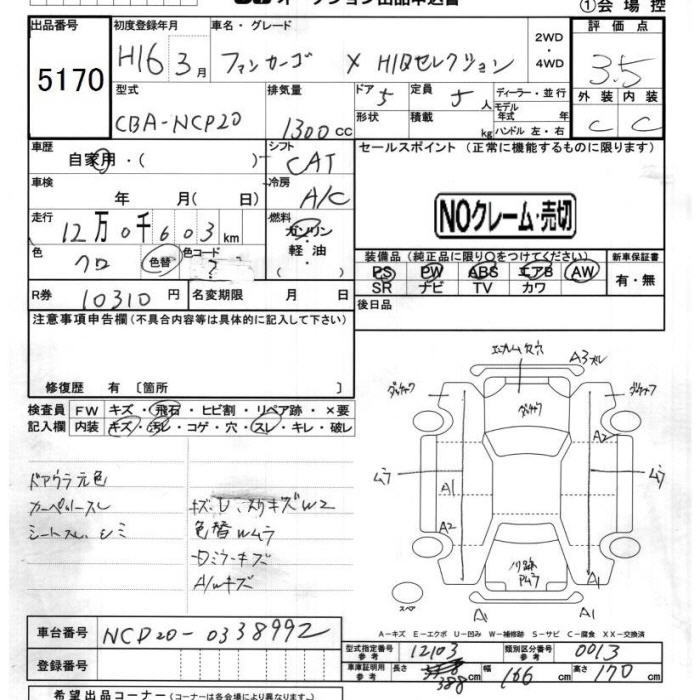 オークション出品申込書
①会場控
出品番号
5170
初度登録年月
H16 3月
車名・グレード
ファンカーゴ X HIDセレクション
2WD
・
4WD
評価点
3.5
型式
CBA-NCP20
排気量
1300cc
ドア 5
定員 5人
ディーラー・並行
モデル
年式 年
形状
積載 kg
ハンドル 左・右
外装 内装
C C
車歴
自家用・( )
シフト
CAT
セールスポイント (正常に機能するものに限ります)
車検
年 月( 日)
冷房
A/C
NOクレーム・売切
走行
12万0千603km
燃料
ガソリン
・
軽油
・
( )
色
クロ 色替
色コード
?
装備品 (純正品に限り○をつけてください)
PS PW ABS エアB AW
SR ナビ TV カワ
新車保証書
有・無
R券
10310円
名変期限 月 日
後日品
注意事項申告欄(不具合内容等は具体的に記入して下さい)
修復歴 有 〔箇所 〕
検査員 FW キズ・飛石・ヒビ割・リペア跡・×要
記入欄 内装 キズ・汚レ・コゲ・穴・スレ・キレ・破レ
ドアウラ元色
シートスレ、シミ
色替Wムラ
A/Wキズ
A3
A2
ムラ
ムラ
A1
A2
A1
A1
A1
スペア
A-キズ E-エクボ U-凹み W-補修跡 S-サビ C-腐食 XX-交換済
車台番号
NCP20-0338992
型式指定番号
参考
12103
類別区分番号
参考
0013
登録番号
車庫証明用
参考
長さ 388cm 幅 166cm 高さ 170cm
希望出品コーナー(コーナーは各会場により異なります。)